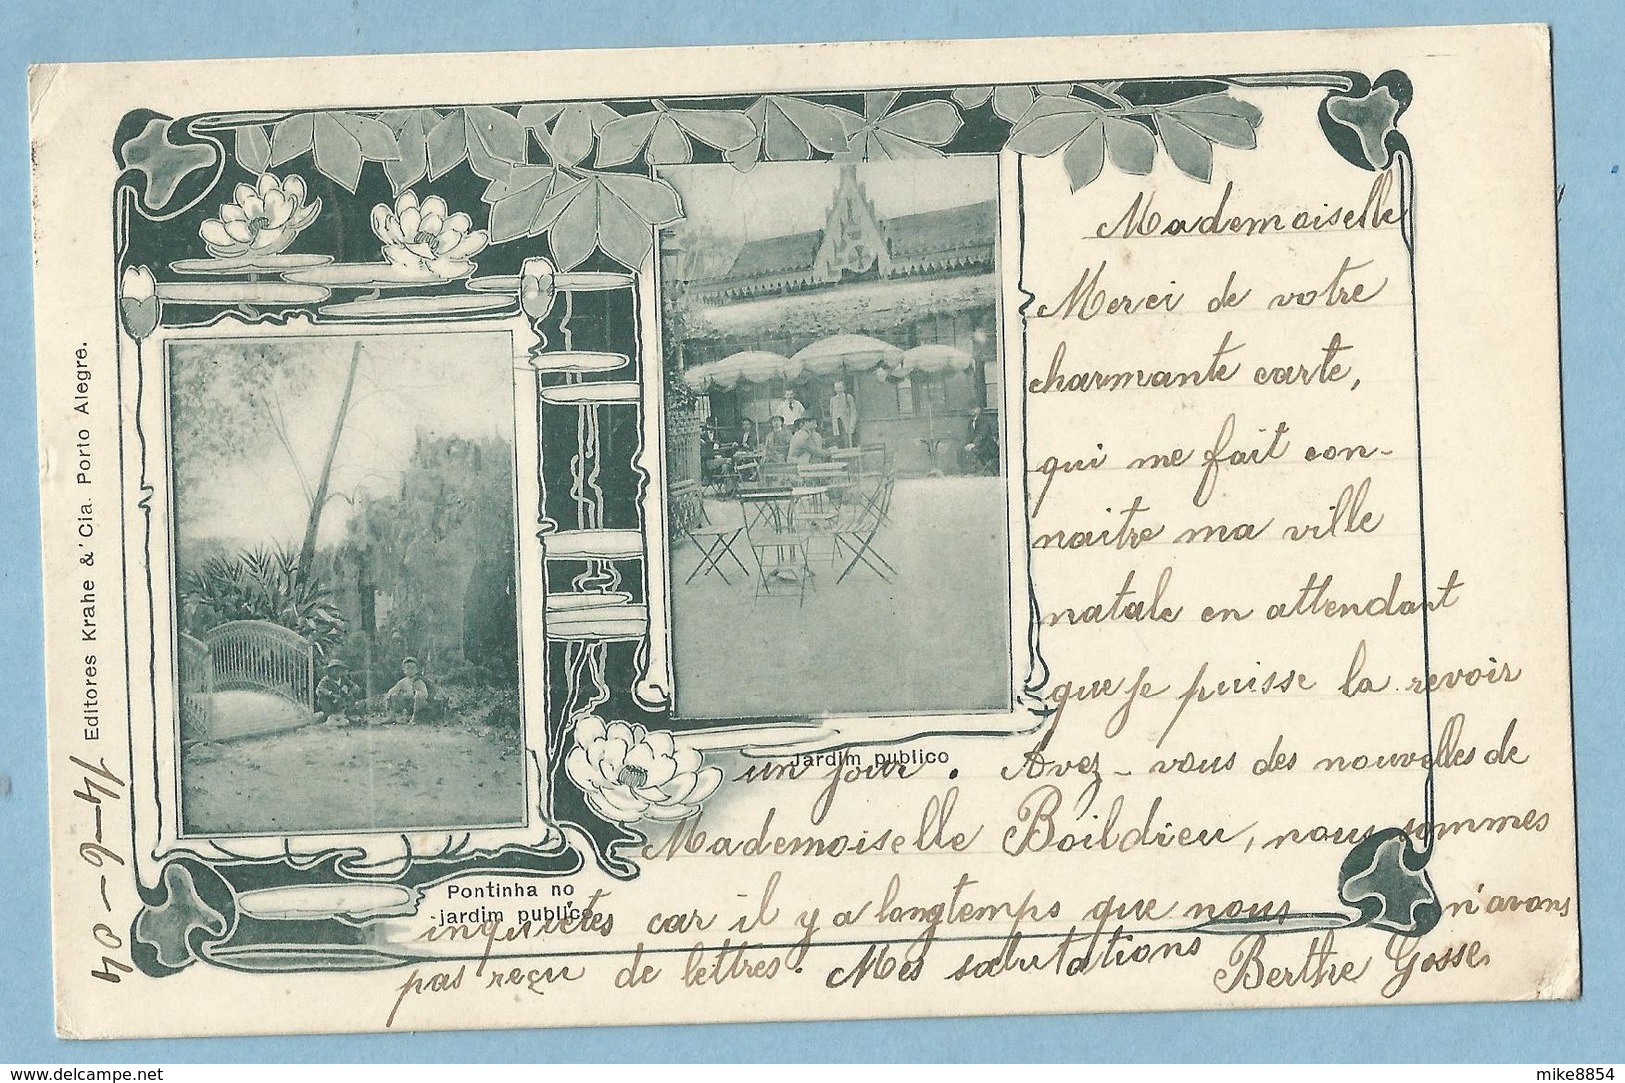 Editores Krahe & Cia. Porto Alegre.
Mademoiselle
Merci de votre
charmante carte,
qui me fait con-
naitre ma ville
natale en attendant
que je puisse la revoir
Jardim publico
un jour. Avez-vous des nouvelles de
Mademoiselle Boildieu, nous sommes
Pontinha no
jardim publico
inquiètes car il y a longtemps que nous n'avons
pas reçu de lettres. Mes salutations Berthe Gosse.
www.delcampe.net
mike8854